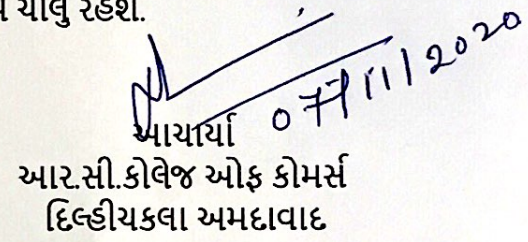 ચાલુ રહેશે.
07/11/2020
આચાર્યા
આર.સી.કોલેજ ઓફ કોમર્સ
દિલ્હીચકલા અમદાવાદ